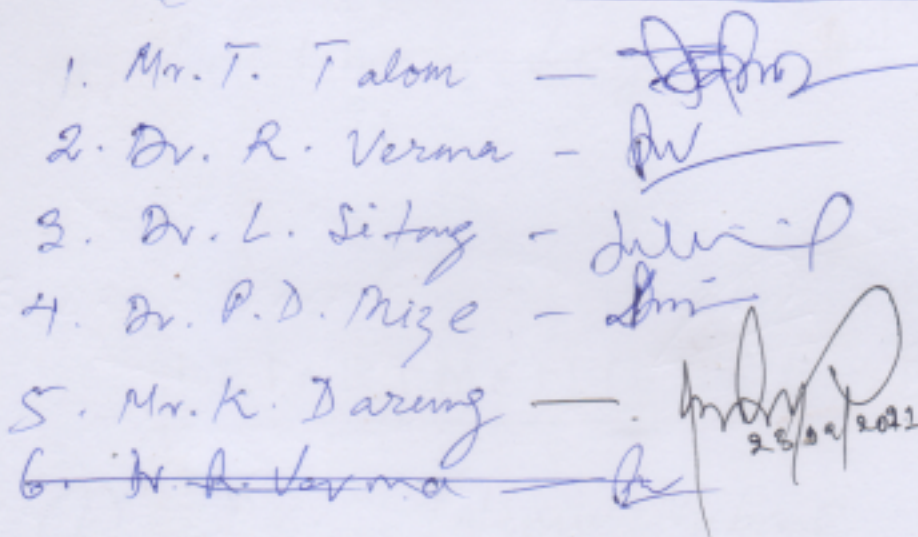 1. Mr. T. Talom —
2. Dr. R. Verma -
3. Dr. L. Sitang -
4. Dr. P.D. Mize -
5. Mr. K. Dareng —
23/09/2021
6. Dr. R. Verma —